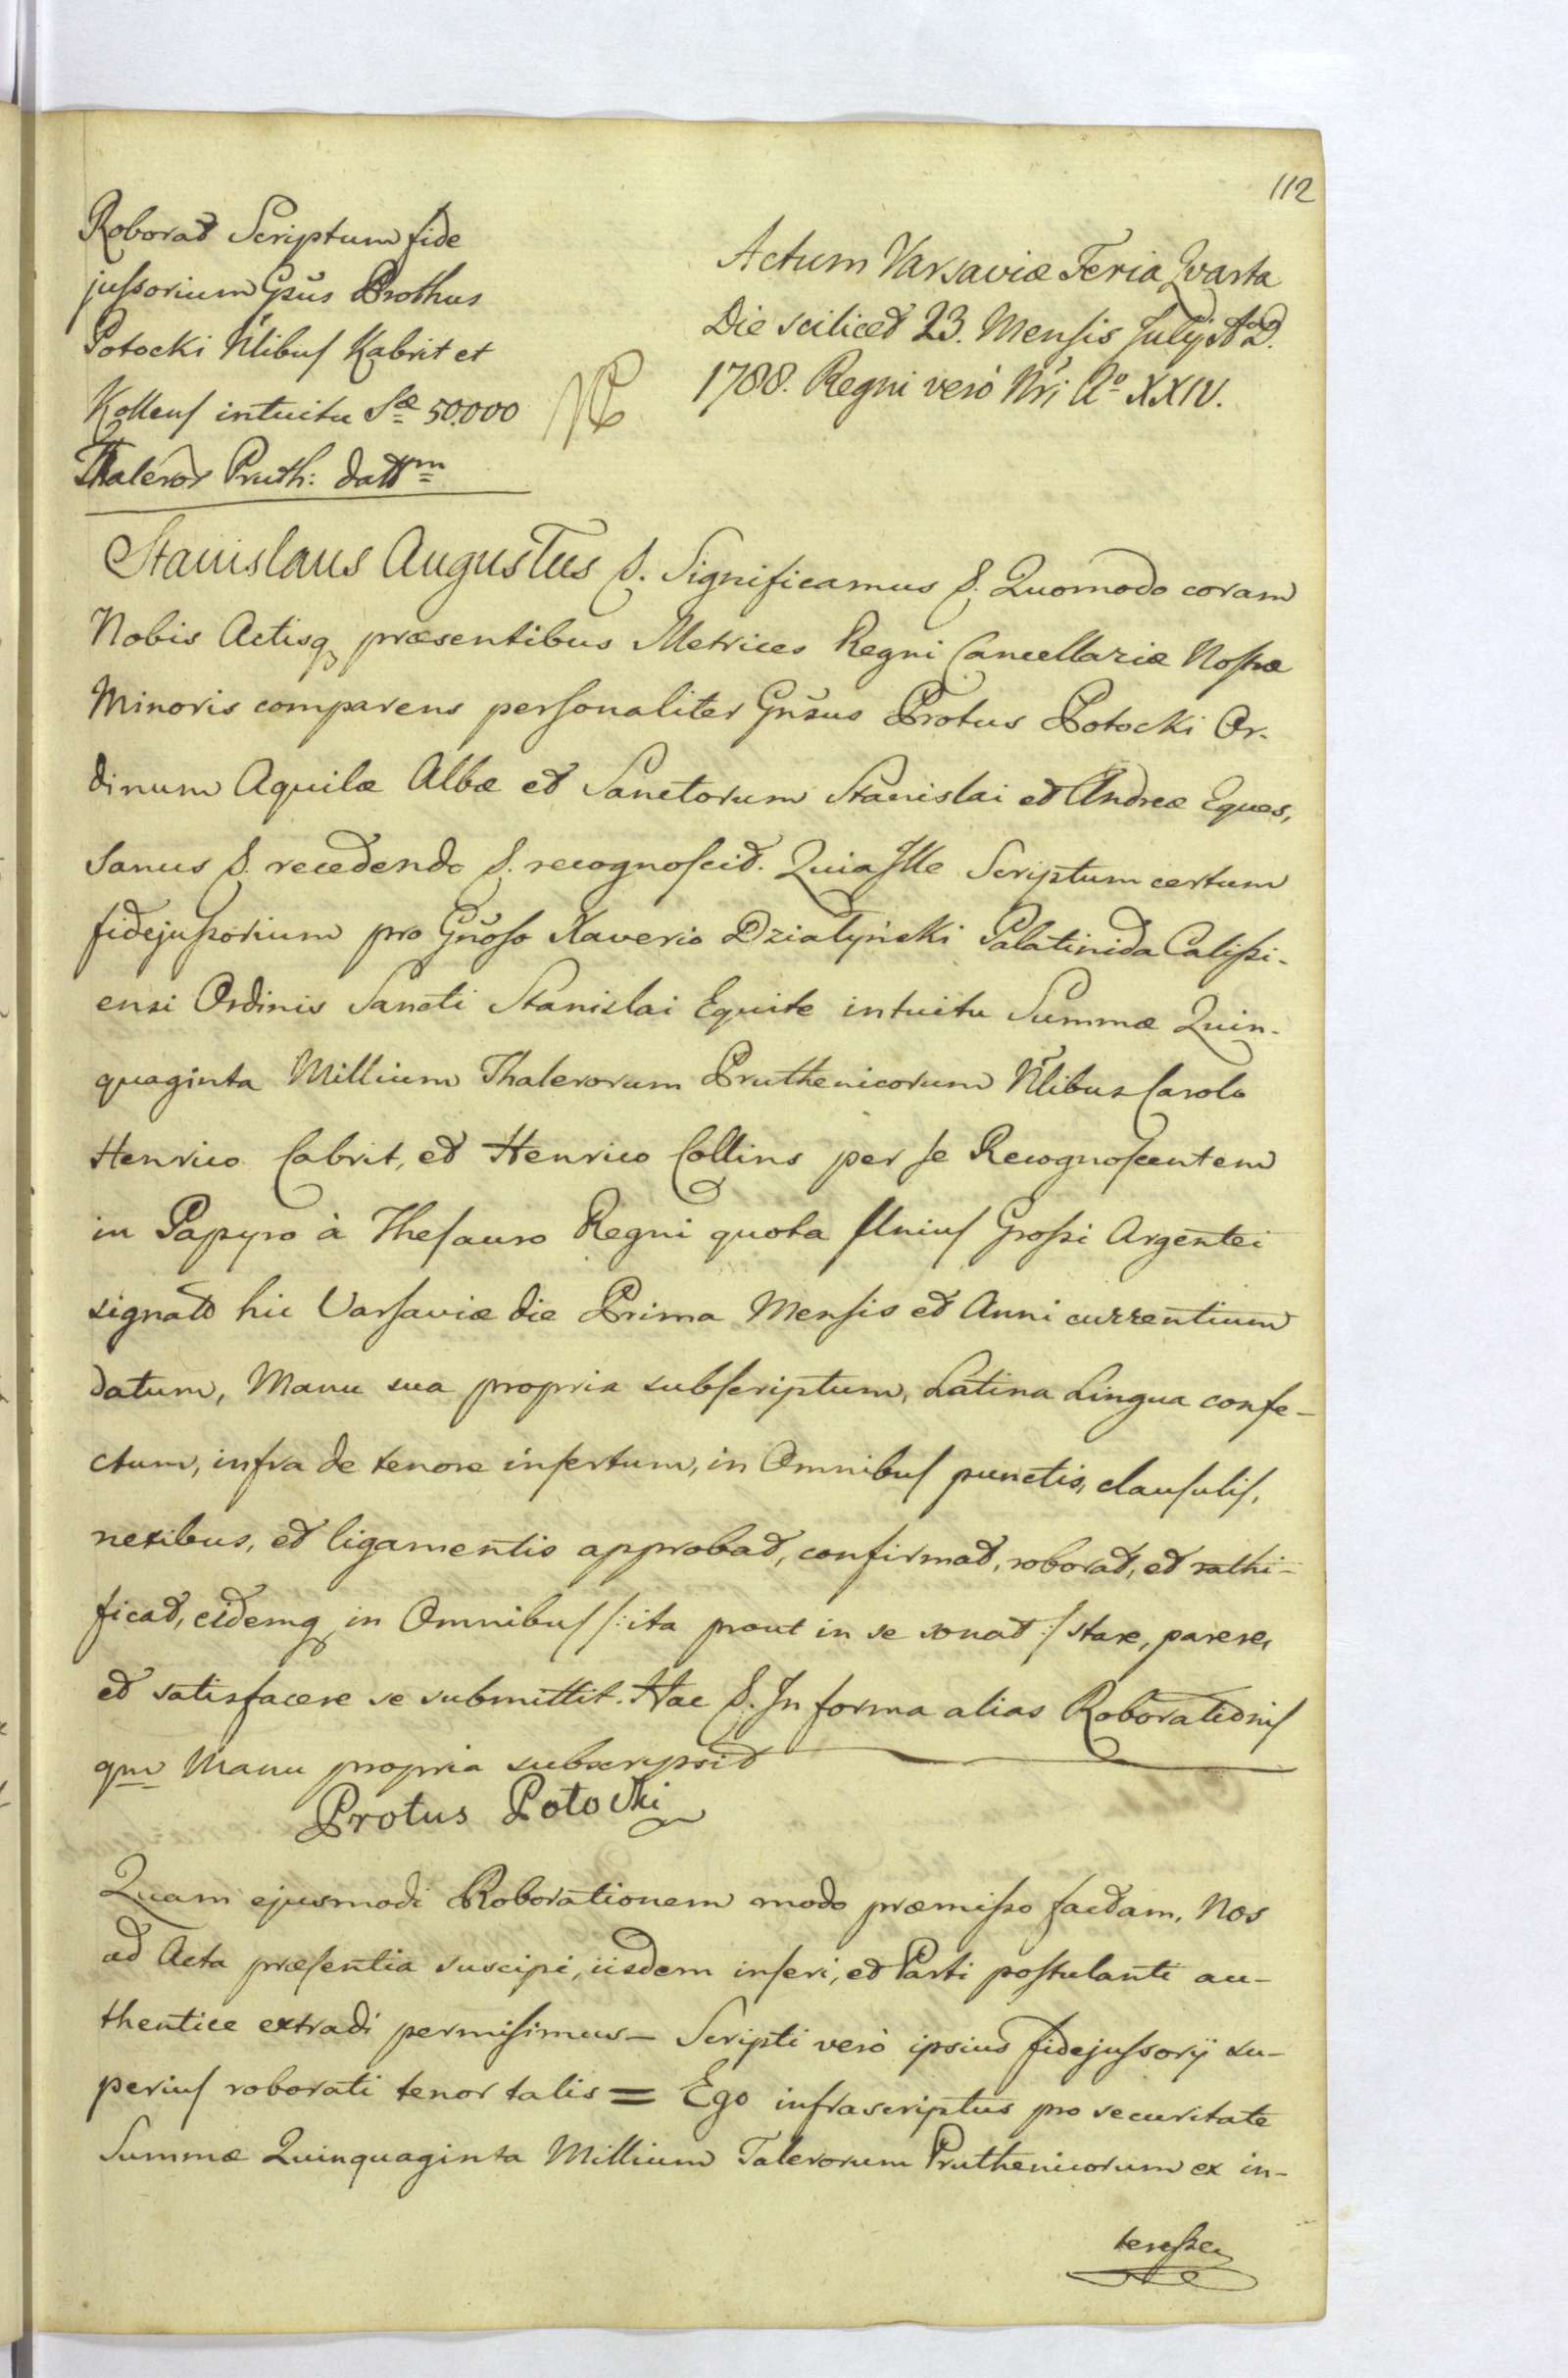 112
Roborat Scriptum fide
jussorium Gsus Prothus
Potocki Nlibus Kabrit et
Kollens intuitu Sæ 50.000
Thaleror Pruth: datt͞m
Actum Varsaviæ Feria Qvarta
Die scilicet 23. Mensis Julij A.D.
1788. Regni verò Nri Aº XXIV.
Stanislaus Augustus &. Significamus &. Quomodo coram
Nobis Actisq præsentibus Metrices Regni Cancellariæ Nostræ
Minoris comparens personaliter Gnsus Protus Potocki Or-
dinum Aquilæ Albæ et Sanctorum Stanislai et Andreæ Eques,
Sanus &. recedendo &. recognoscit. Quia Ille Scriptum certum
fidejussorium pro Gnoso Xaverio Działyński Palatinida Calissi-
ensi Ordinis Sancti Stanislai Equite intuitu Summæ Quin-
quaginta Millium Thalerorum Pruthenicorum Nlibus Carolo
Henrico Cabrit, et Henrico Collins per se Recognoscentem
in Papyro à Thesauro Regni quota Unius Grossi Argentei
signato hic Varsaviæ die Prima Mensis et Anni currentium
datum, Manu sua propria subscriptum, Latina Lingua confe-
ctum, infra de tenore insertum, in Omnibus punctis, clausulis,
nexibus, et ligamentis approbat, confirmat, roborat, et rathi-
ficat, eidemq in Omnibus /: ita prout in se sonat :/ stare, parere,
et satisfacere se submittit. Hac &. In forma alias Roborationis
qm Manu propria subscripsit
Protus Potocki
Quam ejusmodi Roborationem modo præmisso factam, Nos
ad Acta præsentia suscipi, iisdem inseri, et Parti postulanti au-
thentice extradi permisimus – Scripti verò ipsius fidejussorij su-
perius roborati tenor talis = Ego infrascriptus pro securitate
Summæ Quinquaginta Millium Talerorum Pruthenicorum ex in-
teresse